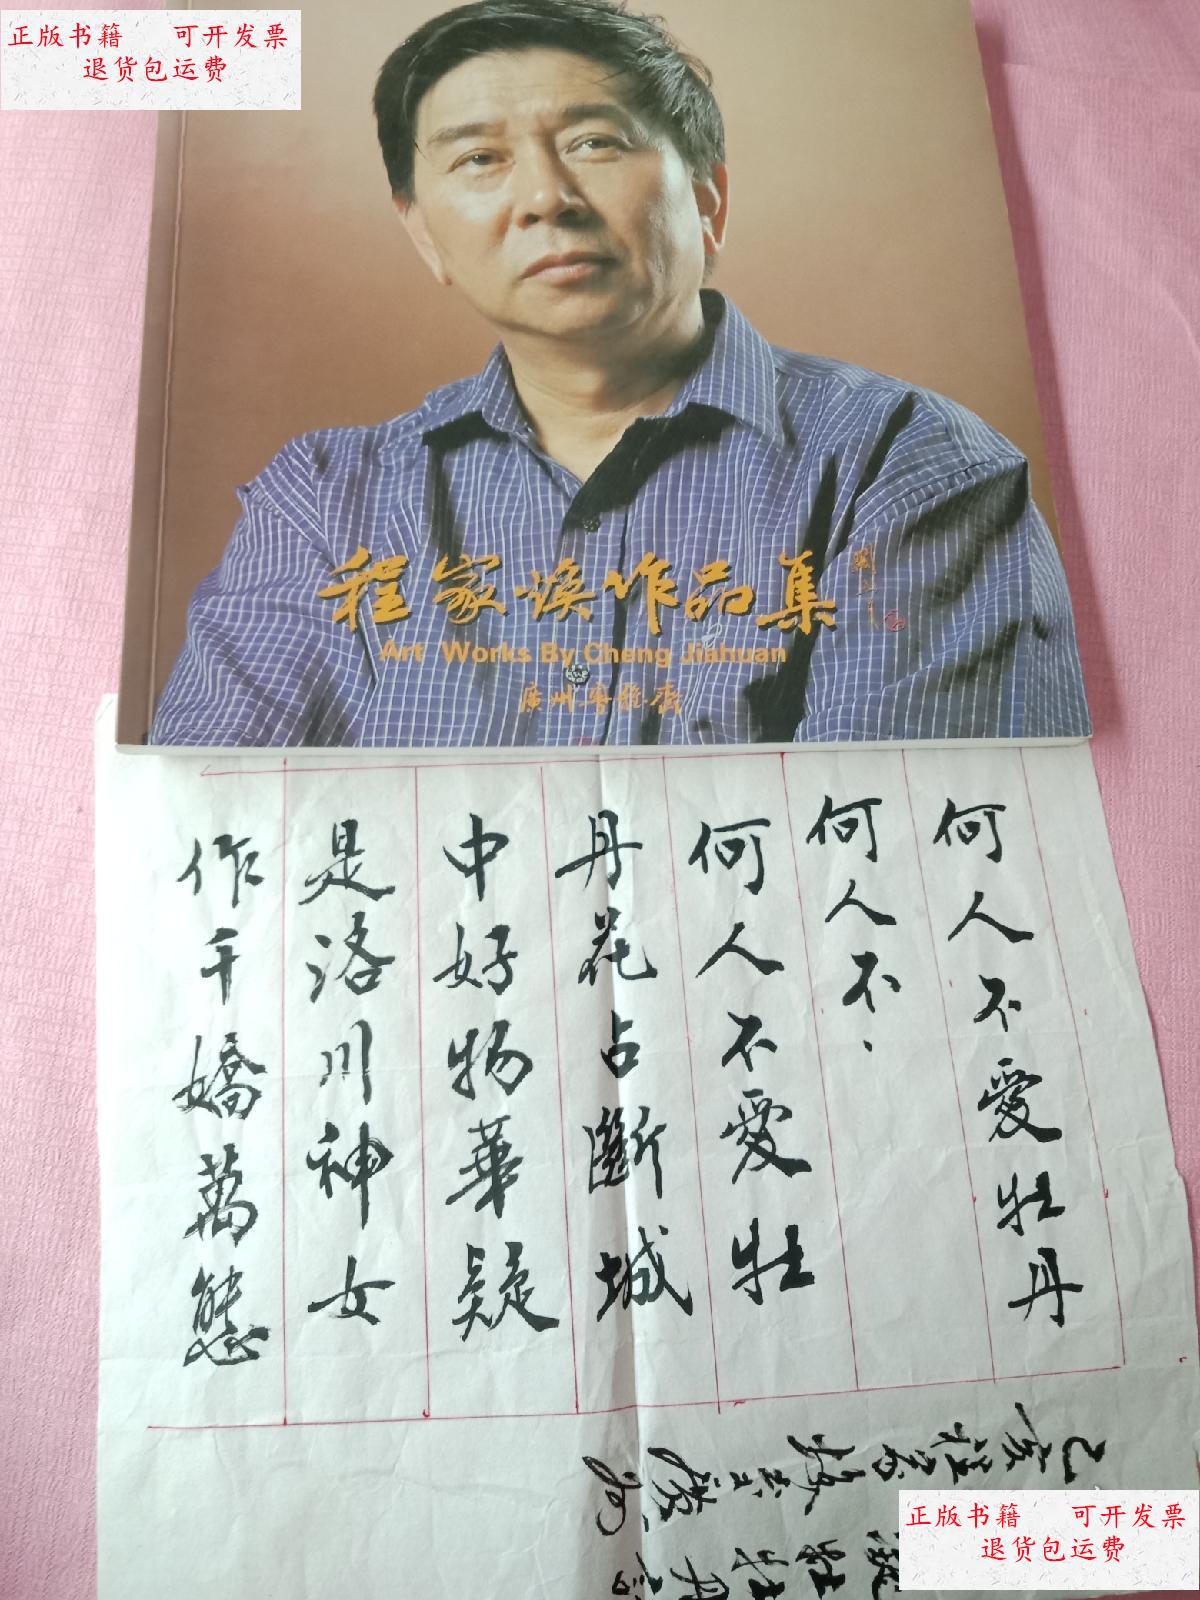 正版书籍 可开发票
退货包运费
程家焕作品集
Art Works By Cheng Jiahuan
廣州粤雅齋
何人不愛牡丹
何人不、
何人不愛牡
丹花占斷城
中好物華疑
是洛川神女
作千嬌萬態
牡丹
正版书籍 可开发票
退货包运费